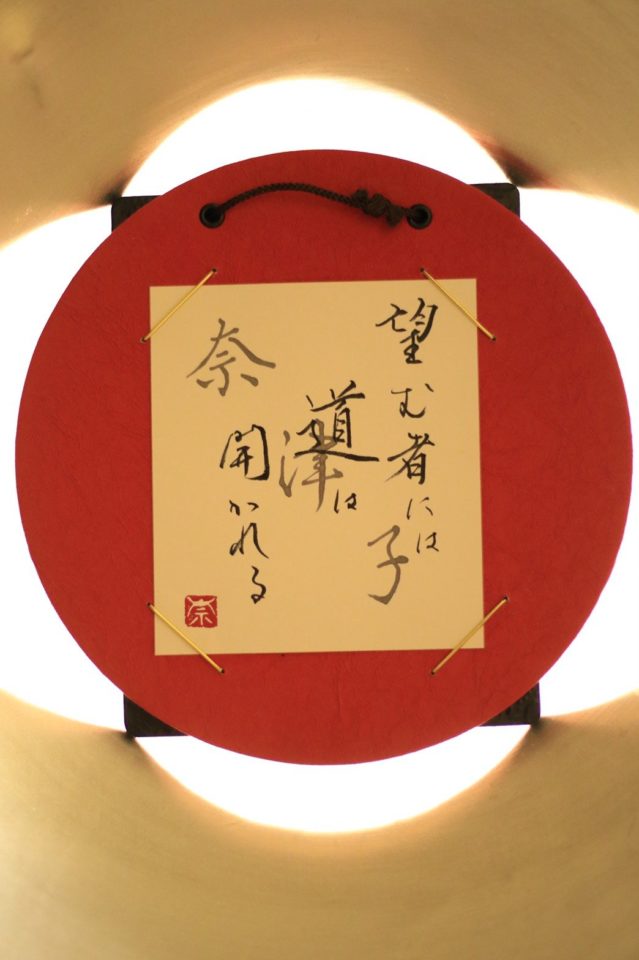 望む者には
道は
開かれる
奈
津
子
奈